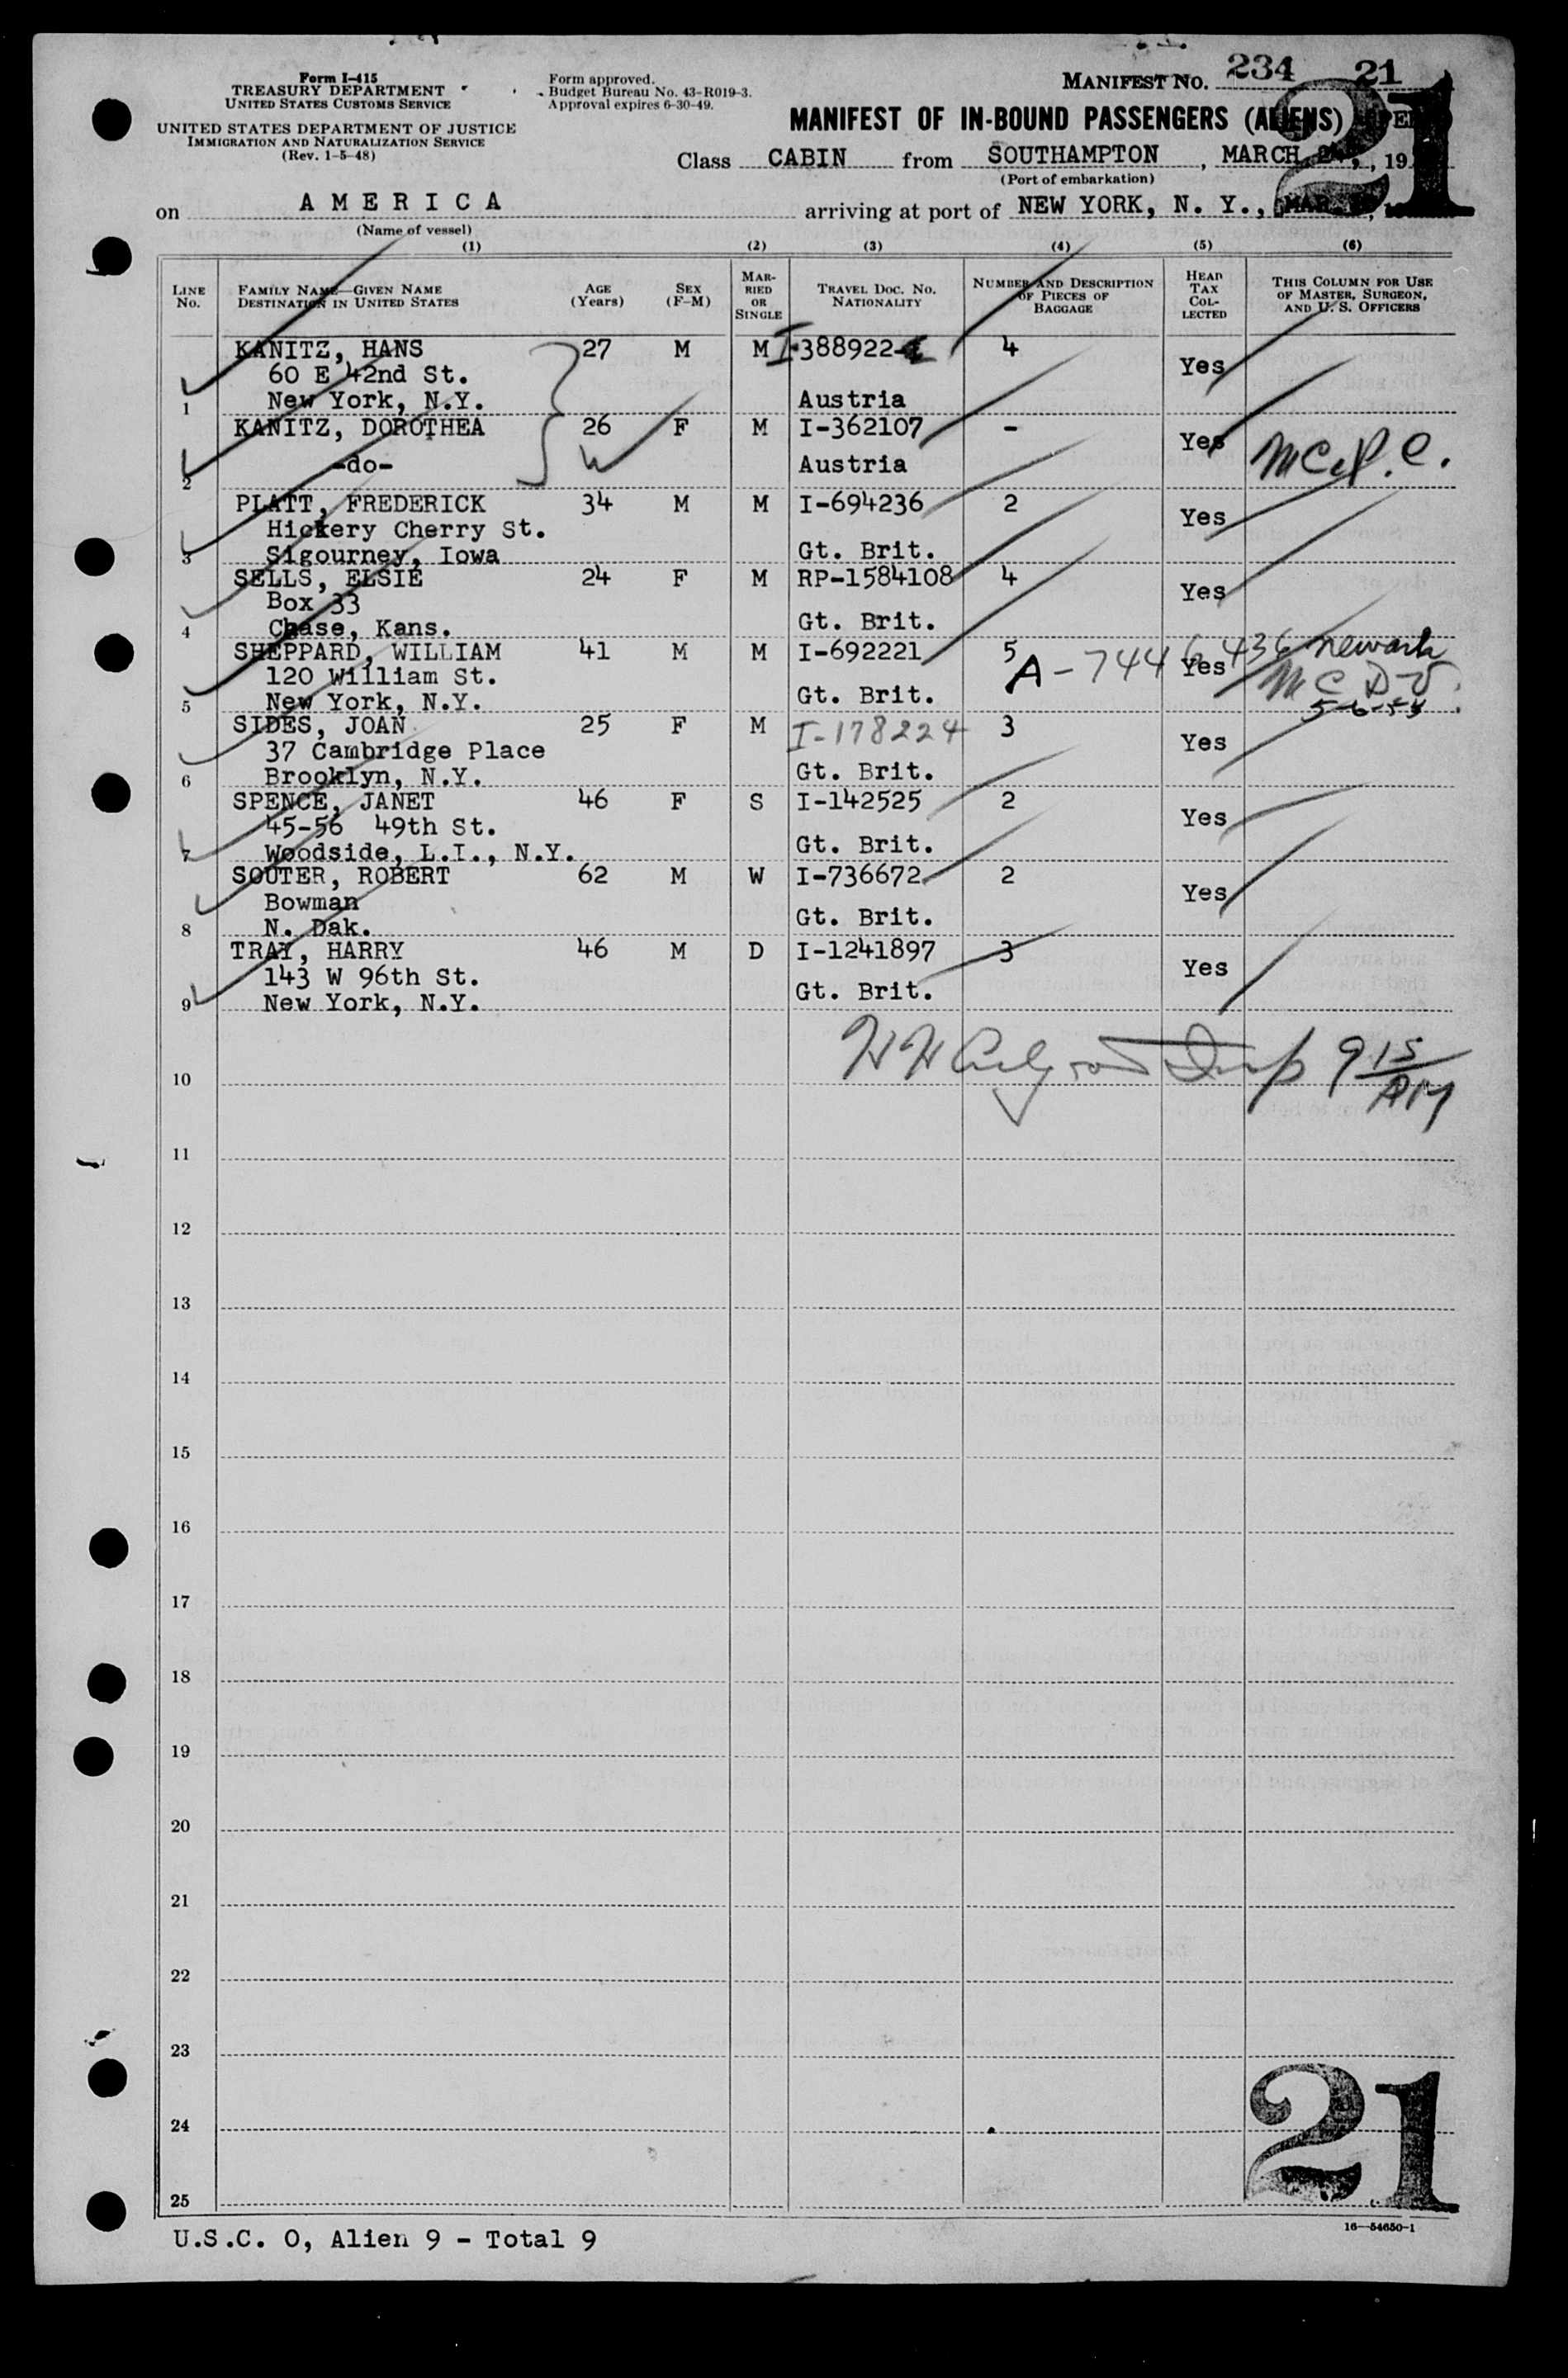 Form I-415
TREASURY DEPARTMENT
UNITED STATES CUSTOMS SERVICE
UNITED STATES DEPARTMENT OF JUSTICE
IMMIGRATION AND NATURALIZATION SERVICE
(Rev. 1-5-48)
Form approved.
Budget Bureau No. 43-R019-3.
Approval expires 6-30-49.
MANIFEST NO. 234 21
21
MANIFEST OF IN-BOUND PASSENGERS (ALIENS)
Class CABIN from SOUTHAMPTON, MARCH , 19
(Port of embarkation)
on AMERICA arriving at port of NEW YORK, N. Y., MAR.
(Name of vessel)
(1) (2) (3) (4) (5) (6)
LINE No. FAMILY NAME—GIVEN NAME DESTINATION IN UNITED STATES AGE (Years) SEX (F-M) MARRIED OR SINGLE TRAVEL DOC. NO. NATIONALITY NUMBER AND DESCRIPTION OF PIECES OF BAGGAGE HEAD TAX COLLECTED THIS COLUMN FOR USE OF MASTER, SURGEON, AND U. S. OFFICERS
KANITZ, HANS 27 M M I-388922 4
60 E 42nd St. Yes
1 New York, N.Y. Austria
KANITZ, DOROTHEA 26 F M I-362107 -
Yes
2 -do- Austria
PLATT, FREDERICK 34 M M I-694236 2
Hickery Cherry St. Yes
3 Sigourney, Iowa Gt. Brit.
SELLS, ELSIE 24 F M RP-1584108 4
Box 33 Yes
4 Chase, Kans. Gt. Brit.
SHEPPARD, WILLIAM 41 M M I-692221 5
A-7446436 Newark
120 William St. Yes
5 New York, N.Y. Gt. Brit.
5-6-54
SIDES, JOAN 25 F M I-178224 3
37 Cambridge Place Yes
6 Brooklyn, N.Y. Gt. Brit.
SPENCE, JANET 46 F S I-142525 2
45-56 49th St. Yes
7 Woodside, L.I., N.Y. Gt. Brit.
SOUTER, ROBERT 62 M W I-736672 2
Bowman Yes
8 N. Dak. Gt. Brit.
TRAY, HARRY 46 M D I-1241897 3
143 W 96th St. Yes
9 New York, N.Y. Gt. Brit.
Insp 9 15 AM
10
11
12
13
14
15
16
17
18
19
20
21
22
23
24
25
21
16—54650-1
U.S.C. 0, Alien 9 - Total 9